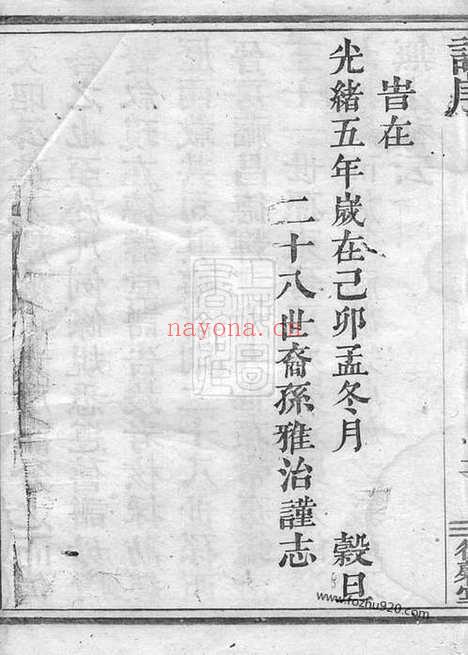 譜序
旹在
光緒五年歲在己卯孟冬月 穀旦
二十八世裔孫雅治謹志
nayona.cn
www.fozhu920.com